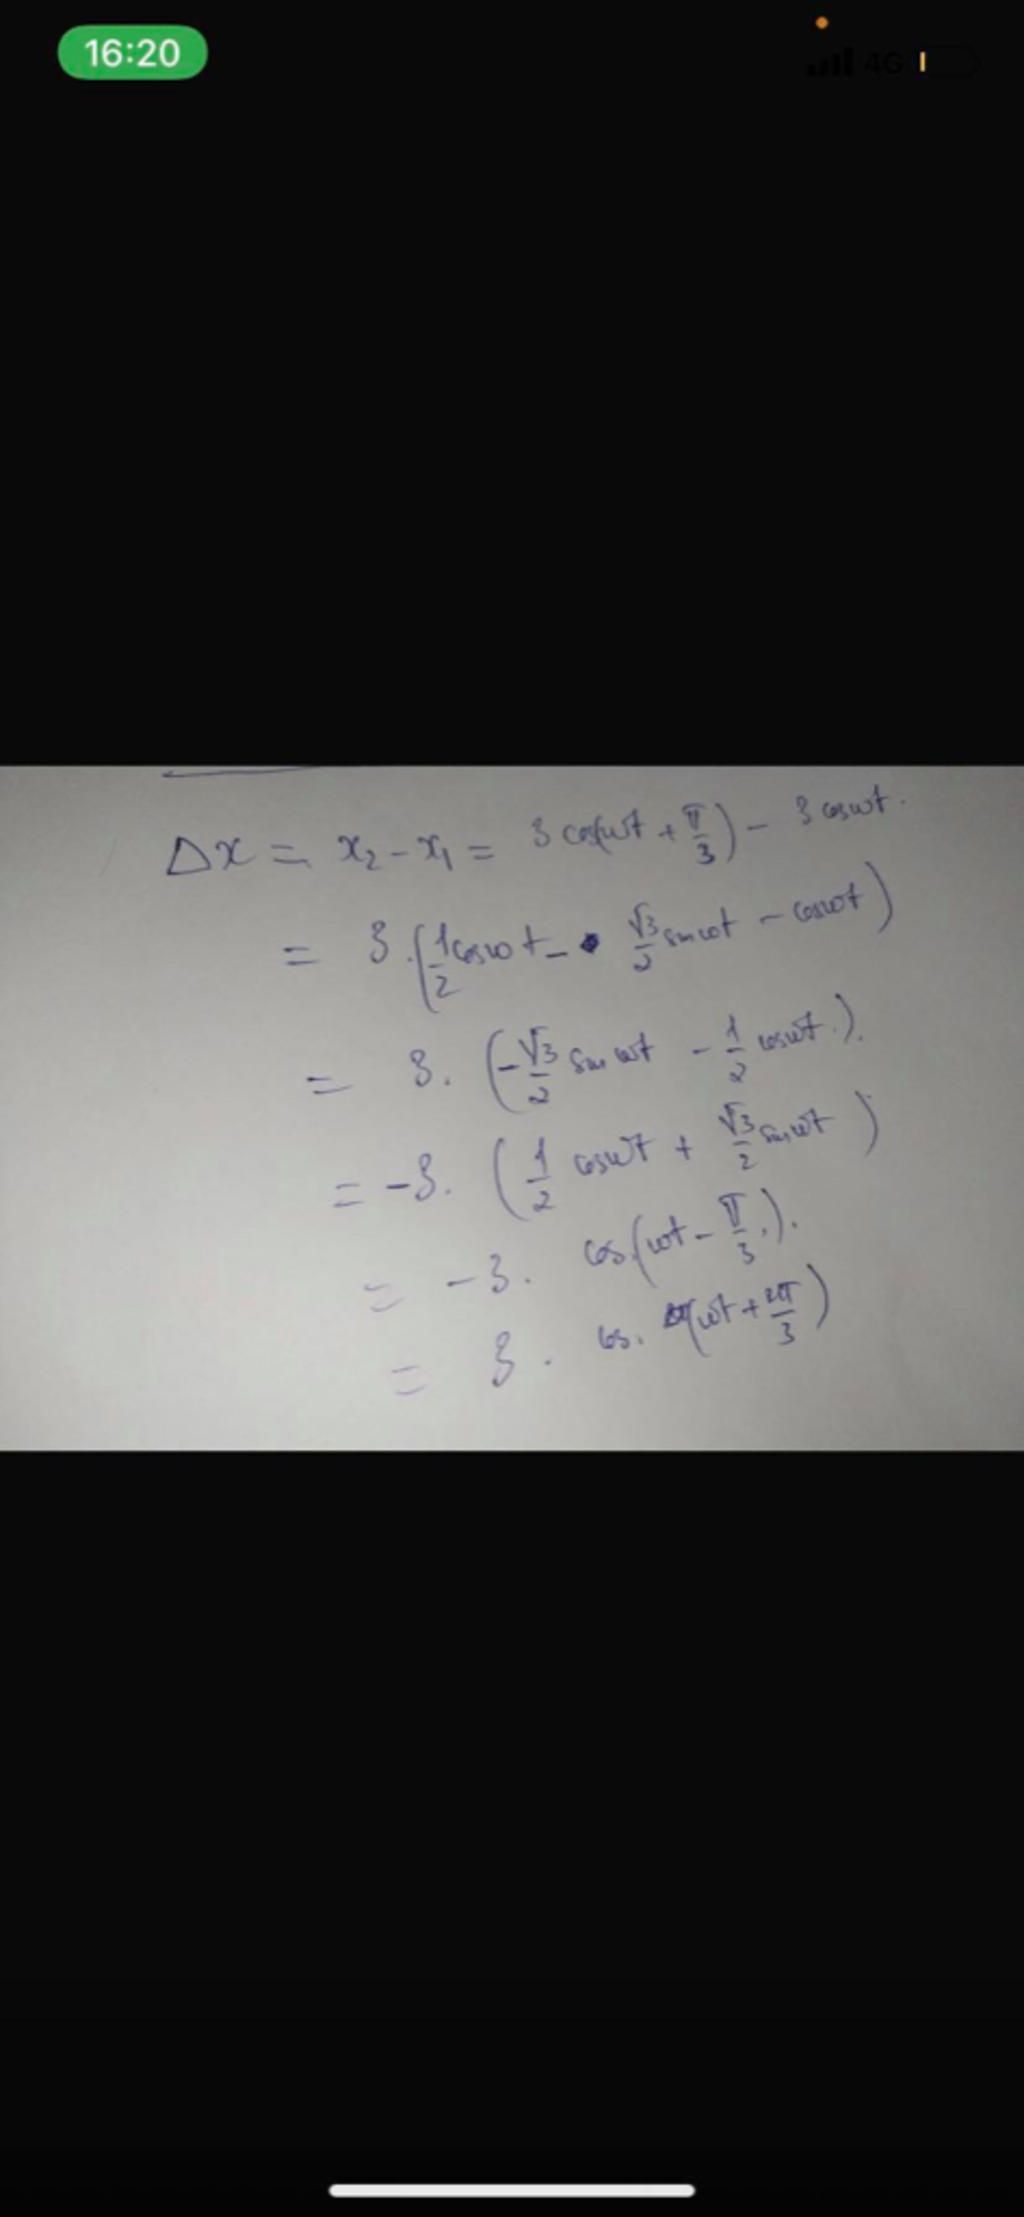 16:20
4G
Δx = x₂ - x₁ = 3 cos(ωt + π/3) - 3 cosωt.
= 3.(1/2 cosωt - √3/2 sinωt - cosωt)
= 3. (-√3/2 sin ωt - 1/2 cosωt.).
= -3. (1/2 cosωt + √3/2 sinωt)
= -3. cos.(ωt - π/3.).
= 3. cos. (ωt + 2π/3)